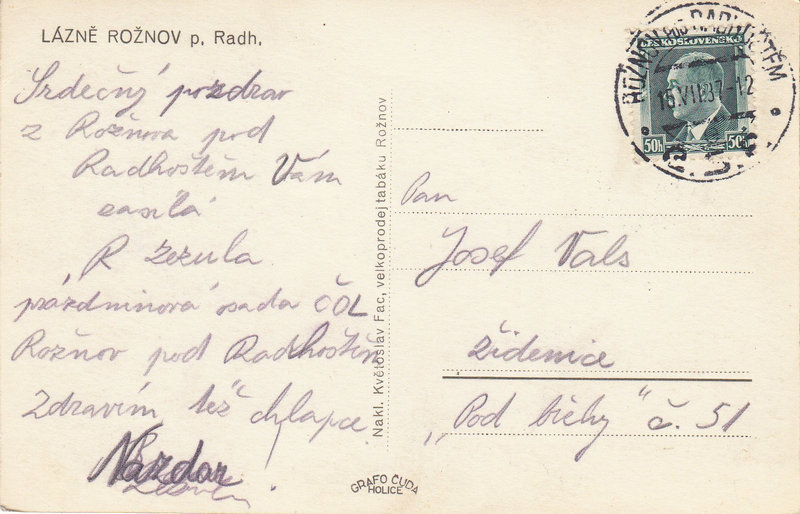 LÁZNĚ ROŽNOV p. Radh.
Srdečný pozdrav
z Rožnova pod
Radhoštěm Vám
zasílá
R Zezula
prázdninová osada ČOL
Rožnov pod Radhoštěm
Zdravím též chlapce
Nazdar
Nakl. Květoslav Fac, velkoprodej tabáku Rožnov
GRAFO ČUDA
HOLICE
ČESKOSLOVENSKO
50h 50h
ROŽNOV POD RADHOŠTĚM
15.VII.37-12
Pan
Josef Vals
Židenice
„Pod břehy" č. 51